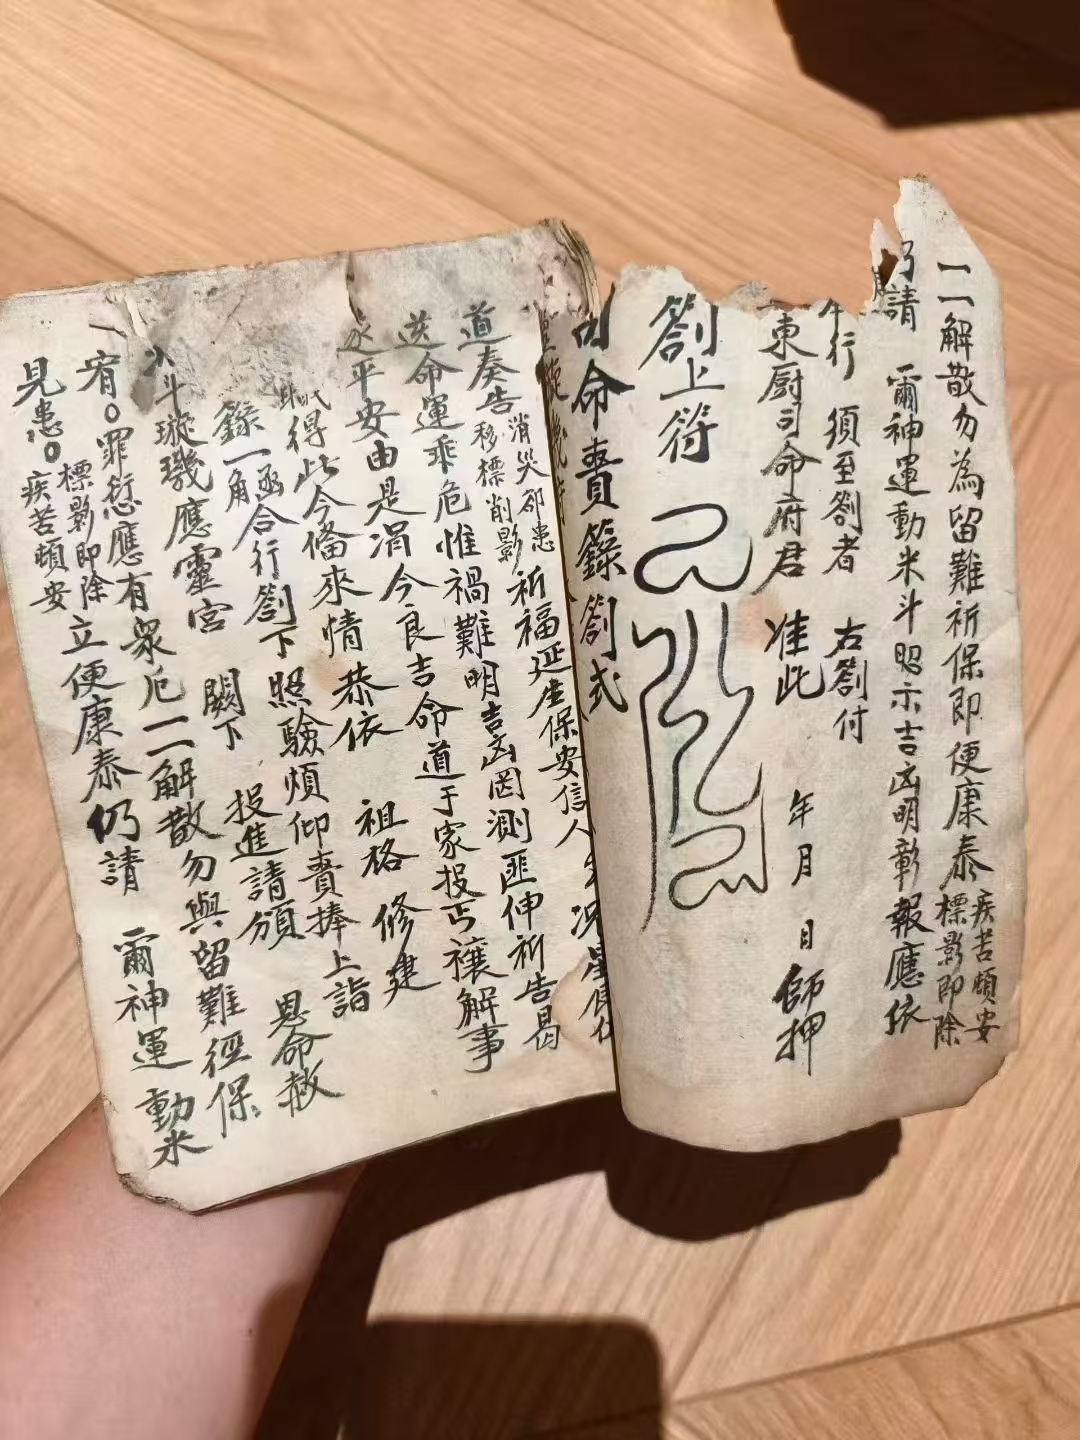 一一解散勿為留難祈保即便康泰
疾苦頓安
標影即除
請 爾神運動米斗昭示吉凶明彰報應依
行 須至劄者 右劄付
東厨司命府君 准此 年 月 日 師押
劄上符
命賫籙劄式
道奏告
消災
患
移標削影
祈福延生保安信人
命運乖危惟禍難明吉凶罔測匪伸祈告曷
平安由是涓今良吉命道于家投丐禳解事
得此今俻來情恭依 祖格 修建
籙一函
一角
合行劄下照驗煩仰賫捧上詣
斗璇璣應靈宮 闕下 投進請頒 恩命赦
宥○罪愆應有衆厄一一解散勿與留難徑保
見患○
標影即除
疾苦頓安
立便康泰仍請 爾神運動米